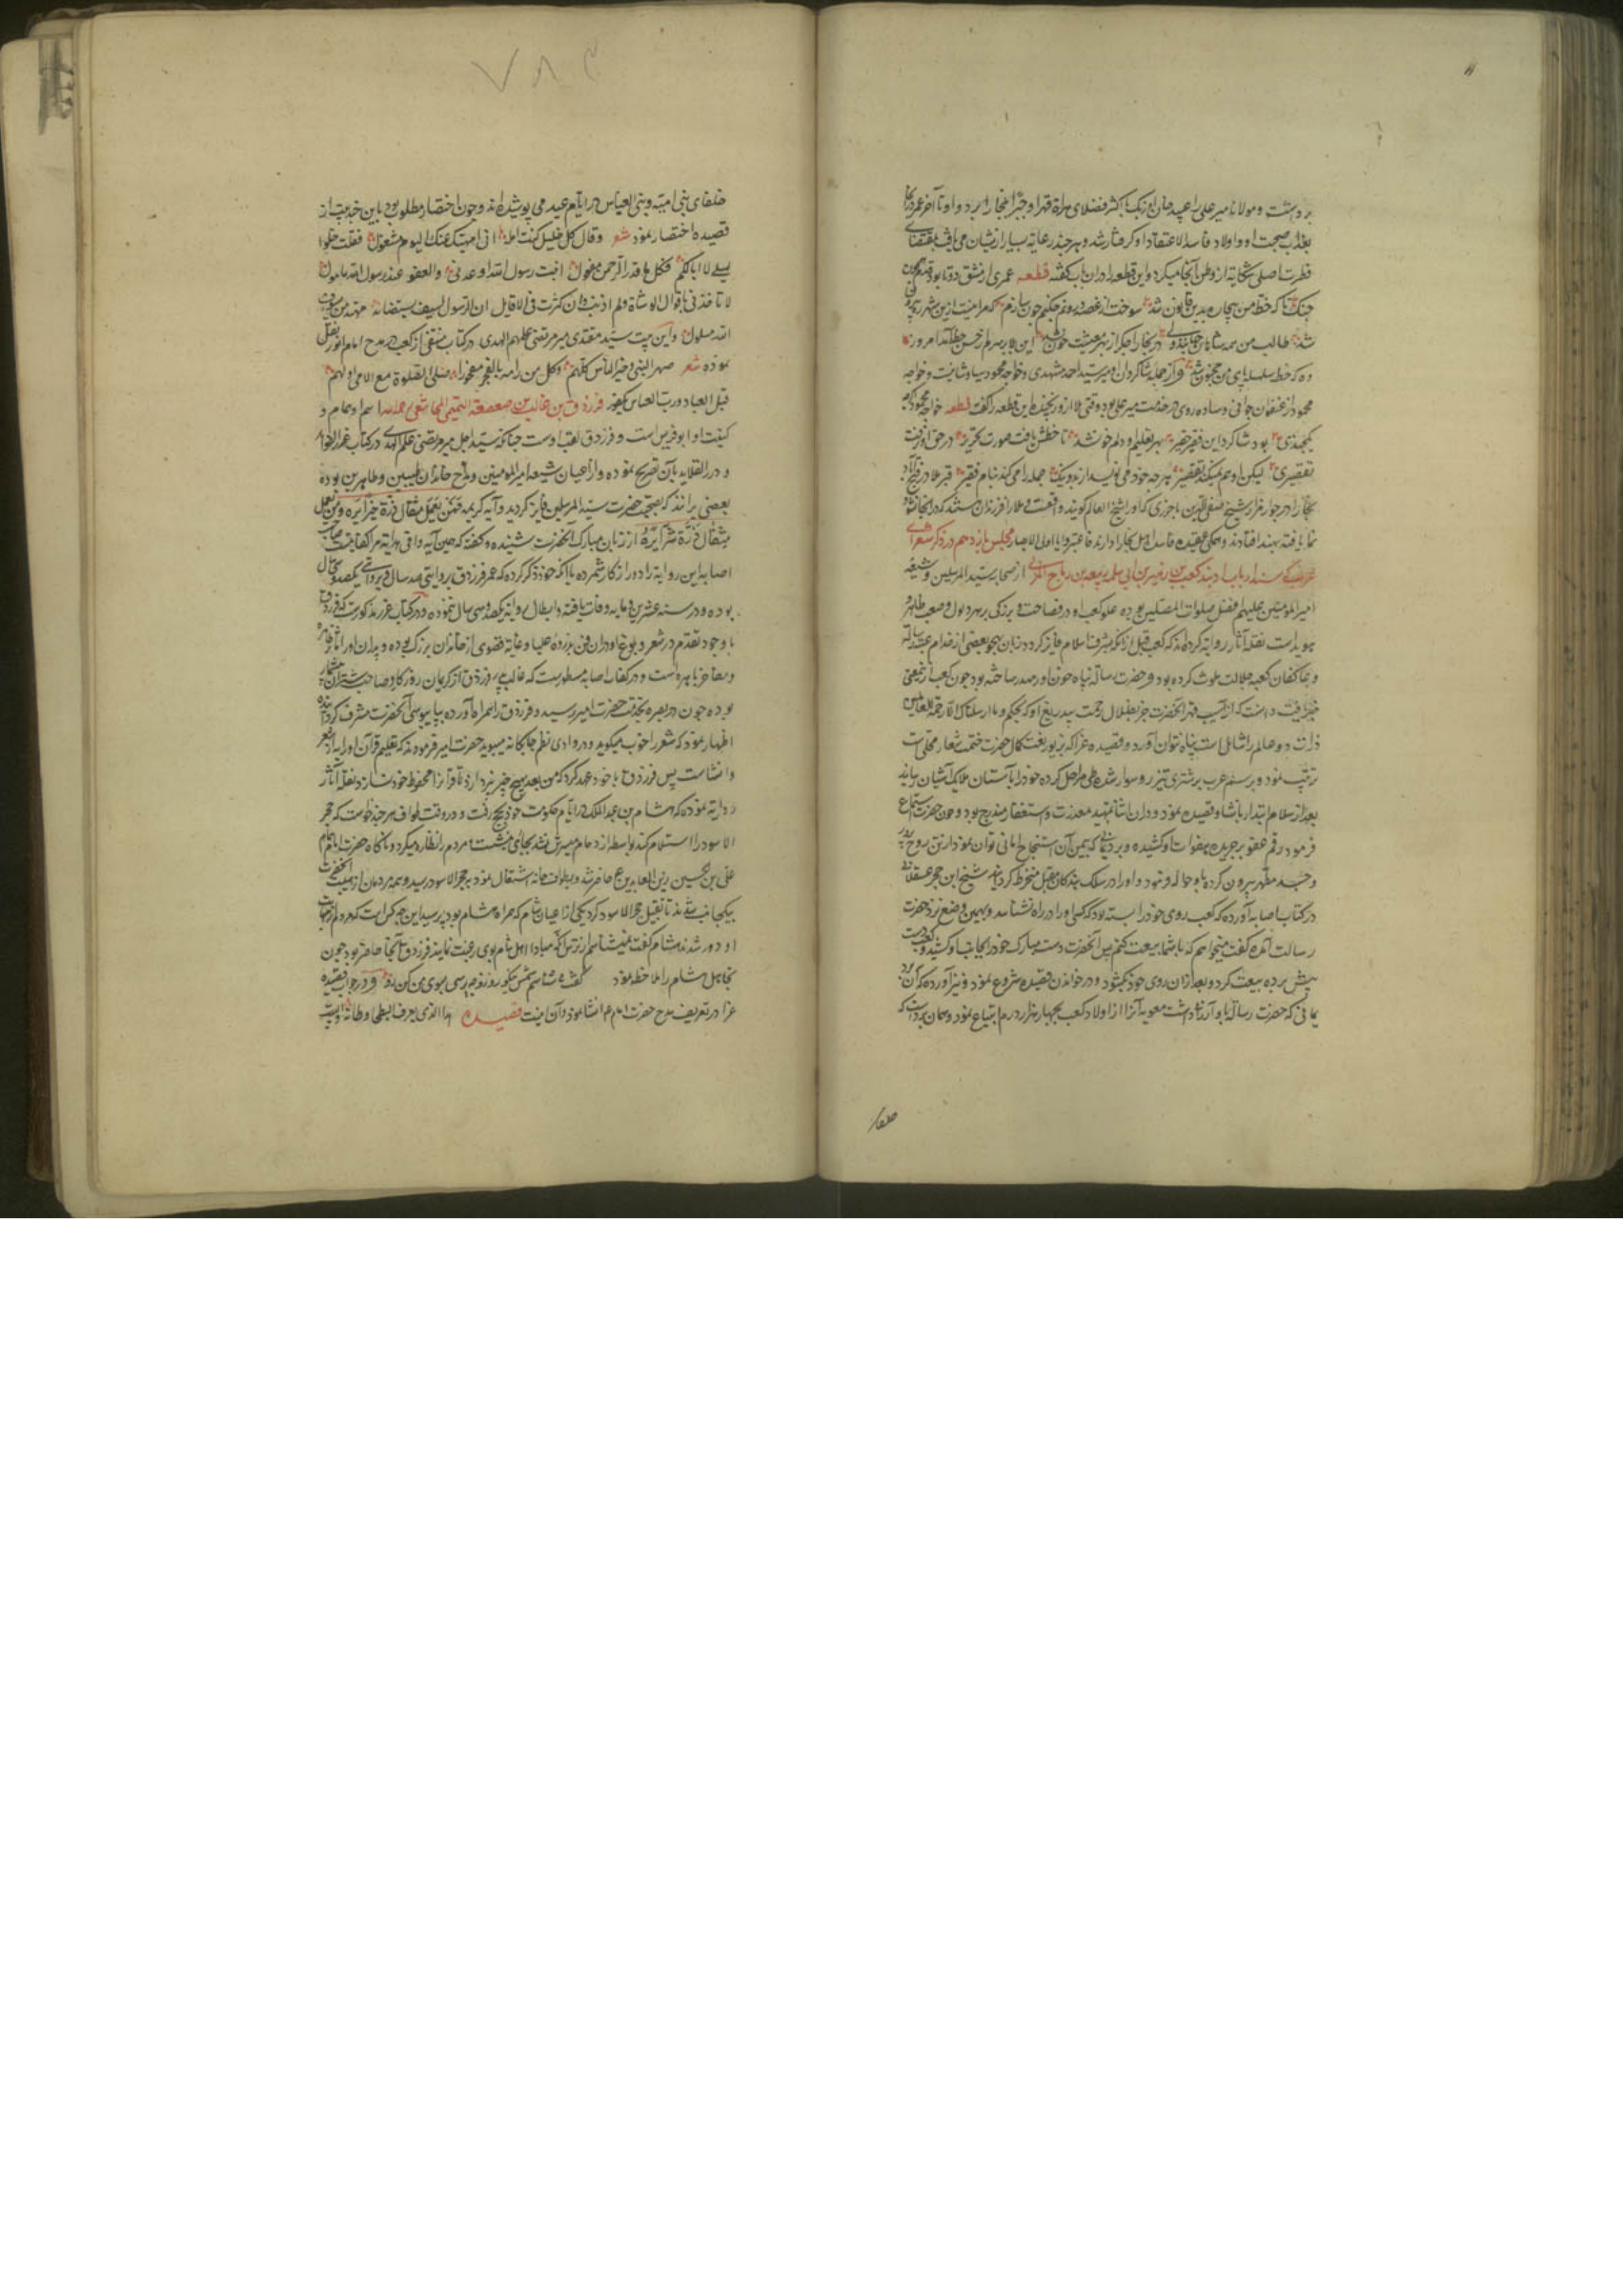 برداشت و مولانا میر علی را عبید خان اوزبک با اکثر فضلای هراة قهرا و جبرا ببخارا برد و او تا آخر عمر در بخارا
بعذاب صحبت او و اولاد فاسد الاعتقاد او گرفتار شد و هر چند رعایة بسیار از ایشان می یافت بمقتضای
فطرت اصلی شکایة از وطن آنجا میکرد و این قطعه را در آن باب گفته قطعه عمری از مشق دو تا بود قدم همچون
چنگ تا که خط من بیچاره بدین قانون شد سوخت از غصه درونم چکنم چون سازم که مرا نیست ازین شهر ره بیرون
شد طالب من همه شاهان جهانند ولی در بخارا جگر از بهر معیشت خون شد این بلا بر سرم از حسن خط آمد امروز
وه که خط سلسله پای من مجنون شد و از جمله شاگردان او میر سید احمد مشهدی و خواجه محمود سیاوشانیست و خواجه
محمود از عنفوان جوانی و ساده روی در خدمت میر علی بود وقتی ملا ازو رنجیده این قطعه را گفت قطعه خواجه محمود آنکه
یکچندی بود شاگرد این فقیر حقیر بهر تعلیم او دلم خون شد تا خطش یافت صورت تحریر در حق او نرفت
تقصیری لیکن او هم نمیکند تقصیر هر چه خود می نویسد از بد و نیک جمله را می کند بنام فقیر قبر ملا در فتح آباد
بخارا در جوار مزار شیخ سیف الدین باخرزی که او را شیخ العالم گویند واقعست و ملا را فرزندان هستند که در آنجا نشو
نما یافته بهند افتادند و همگی عقیده فاسد اهل بخارا دارند فاعتبروا یا اولی الابصار مجلس یازدهم در ذکر شعرای
عرب کعب بن زهیر بن ابی سلمی ربیعه بن رباح المزنی از صحابه سید المرسلین و شیعه
امیر المومنین علیهم افضل صلوات المصلین بوده علو کعب او در فصاحت و بزرگی بر هر ذلول و صعب ظاهر و
هویداست نقله آثار روایة کرده اند که کعب قبل از آنکه بشرف اسلام فایز گردد زبان بهجو بعضی از خدام عتبه رسالة
و عاکفان کعبه جلالت ملوث کرده بود و حضرت رسالة پناه خون او را هدر ساخته بود چون کعب ازین معنی
خبر یافت دانست که از آسیب قهر آنحضرت جز بظلال رحمت بیدریغ او که بحکم و ما ارسلناک الا رحمة للعالمین
ذرات دو عالم را شامل است پناه نتوان آورد و قصیده غرا که بزیور نعت کمال حضرت ختمیت شعار محلی است
ترتیب نمود و برسم عرب بر شتری تیز رو سوار شده طی مراحل کرده خود را بآستان ملایک آشیان رسانید
بعد از سلام ابتدا بانشاد قصیده نمود و در آن اثنا تمهید معذرت و استغفار مندرج بود و چون حضرت استماع
فرمود رقم عفو بر جریده هفوات او کشیده و بردی که بیمن آن استنجاح امانی توان نمود از تن روح پرور
و جسد مطهر بیرون کرده باو حواله نمود و او را در سلک بندگان مقبل منخرط گردانید شیخ ابن حجر عسقلانی
در کتاب اصابه آورده که کعب روی خود را بسته بود که کسی او را در راه نشناسد و بهمین وضع نزد حضرت
رسالت آمده گفت میخواهم که با شما بیعت کنم پس آنحضرت دست مبارک خود را بجانب او کشید و کعب دست
پیش برده بیعت کرد و بعد از آن روی خود بگشود و در خواندن قصیده شروع نمود و نیز آورده که آن برد
یمانی که حضرت رسالة باو ارزانی داشت معویه آنرا از اولاد کعب بچهار هزار درم ابتیاع نمود و همان بردست که
خلفا
خلفای بنی امیة و بنی العباس در ایام عید می پوشیده اند و چون اختصار مطلوب بود باین چند بیت از
قصیده اختصار نمود شعر وقال کل خلیل کنت آمله انی الهیتک انی عنک الیوم مشغول فقلت خلوا
سبیلی لا ابا لکم فکل ما قدر الرحمن مفعول انبئت رسول الله اوعدنی والعفو عند رسول الله مامول
لا تاخذنی باقوال الوشاة ولم اذنب وان کثرت فی الاقاویل ان الرسول لسیف یستضاء به مهند من سیوف
الله مسلول و این بیت سید مقتدی میر مرتضی علم الهدی در کتاب منتقی از کعب در مدح امام الوری نقل
نموده شعر صهر النبی و خیر الناس کلهم وکل من رامه بالفخر مفخور صلی الصلوة مع الامی اولهم
قبل العباد ورب العباس مکفور فرزدق بن غالب بن صعصعة التمیمی المجاشعی رحمه الله اسم او همام و
کنیت او ابو فراس است و فرزدق لقب اوست چنانکه سید اجل میر مرتضی علم الهدی در کتاب غرر الفواید
و درر القلاید بآن تصریح نموده و از اعیان شیعه امیر المومنین و مداح خاندان طیبین و طاهرین بوده
بعضی برانند که بصحبت حضرت سید المرسلین فایز گردید و آیه کریمه فمن یعمل مثقال ذرة خیرا یره ومن یعمل
مثقال ذرة شرا یره از زبان مبارک آنحضرت شنیده و گفته که همین آیه وافی هدایة مرا کفایتست صاحب
اصابه این روایة را دور از کار شمرده با آنکه خود ذکر کرده که عمر فرزدق بروایتی صد سال و بروایتی یکصد و سی سال
بوده و در سنه عشرین و مایه وفات یافته و ابطال روایة یکصد و سی سال ننموده و در کتاب غرر مذکورست که فرزدق
با وجود تقدم در شعر و بلوغ او در آن فن بذروه علیا و غایة قصوی از خاندان بزرگی بوده و پدران او را مآثر ظاهره
و مفاخر باهره است و در کتاب اصابه مسطورست که غالب پدر فرزدق از کریمان روزگار و صاحب شتران بیشمار
بوده چون در بصره بخدمت حضرت امیر رسید و فرزدق را همراه آورده بپابوسی آنحضرت مشرف گردانیده
اظهار نمود که شعر را خوب میگوید و در وادی نظم چابکانه میپوید حضرت امیر فرمودند که تعلیم قرآن او را به از شعر
و انشاست پس فرزدق با خود عهد کرد که من بعد بهیچ چیز نپردازد تا قرآنرا محفوظ خود نسازد نقله آثار
روایة نموده که هشام بن عبد الملک در ایام حکومت خود بحج رفت و در وقت طواف هر چند خواست که حجر
الاسود را استلام کند بواسطه ازدحام میسرش نشد بجائی نشست و مردم را نظاره میکرد و ناگاه حضرت امام
علی بن الحسین زین العابدین ع حاضر شد و بطواف خانه اشتغال نمود چون بحجر الاسود رسید همه مردمان از هیبت آنحضرت
بیکجانب شدند تا تقبیل حجر الاسود کرد یکی از اعیان شام که همراه هشام بود پرسید این چه کس است که مردم از مهابت
او دور شدند هشام گفت نمیشناسم از ترس آنکه مبادا اهل شام بوی رغبت نمایند فرزدق آنجا حاضر بود چون
تجاهل هشام را ملاحظه نمود گفت من میشناسمش نیکو زو چه پرسی بسوی من کن رو و در جواب قصیده
غرا در تعریف و مدح حضرت امام ع انشا نمود و آن اینست قصیده هذا الذی یعرف البطحاء وطأته والبیت